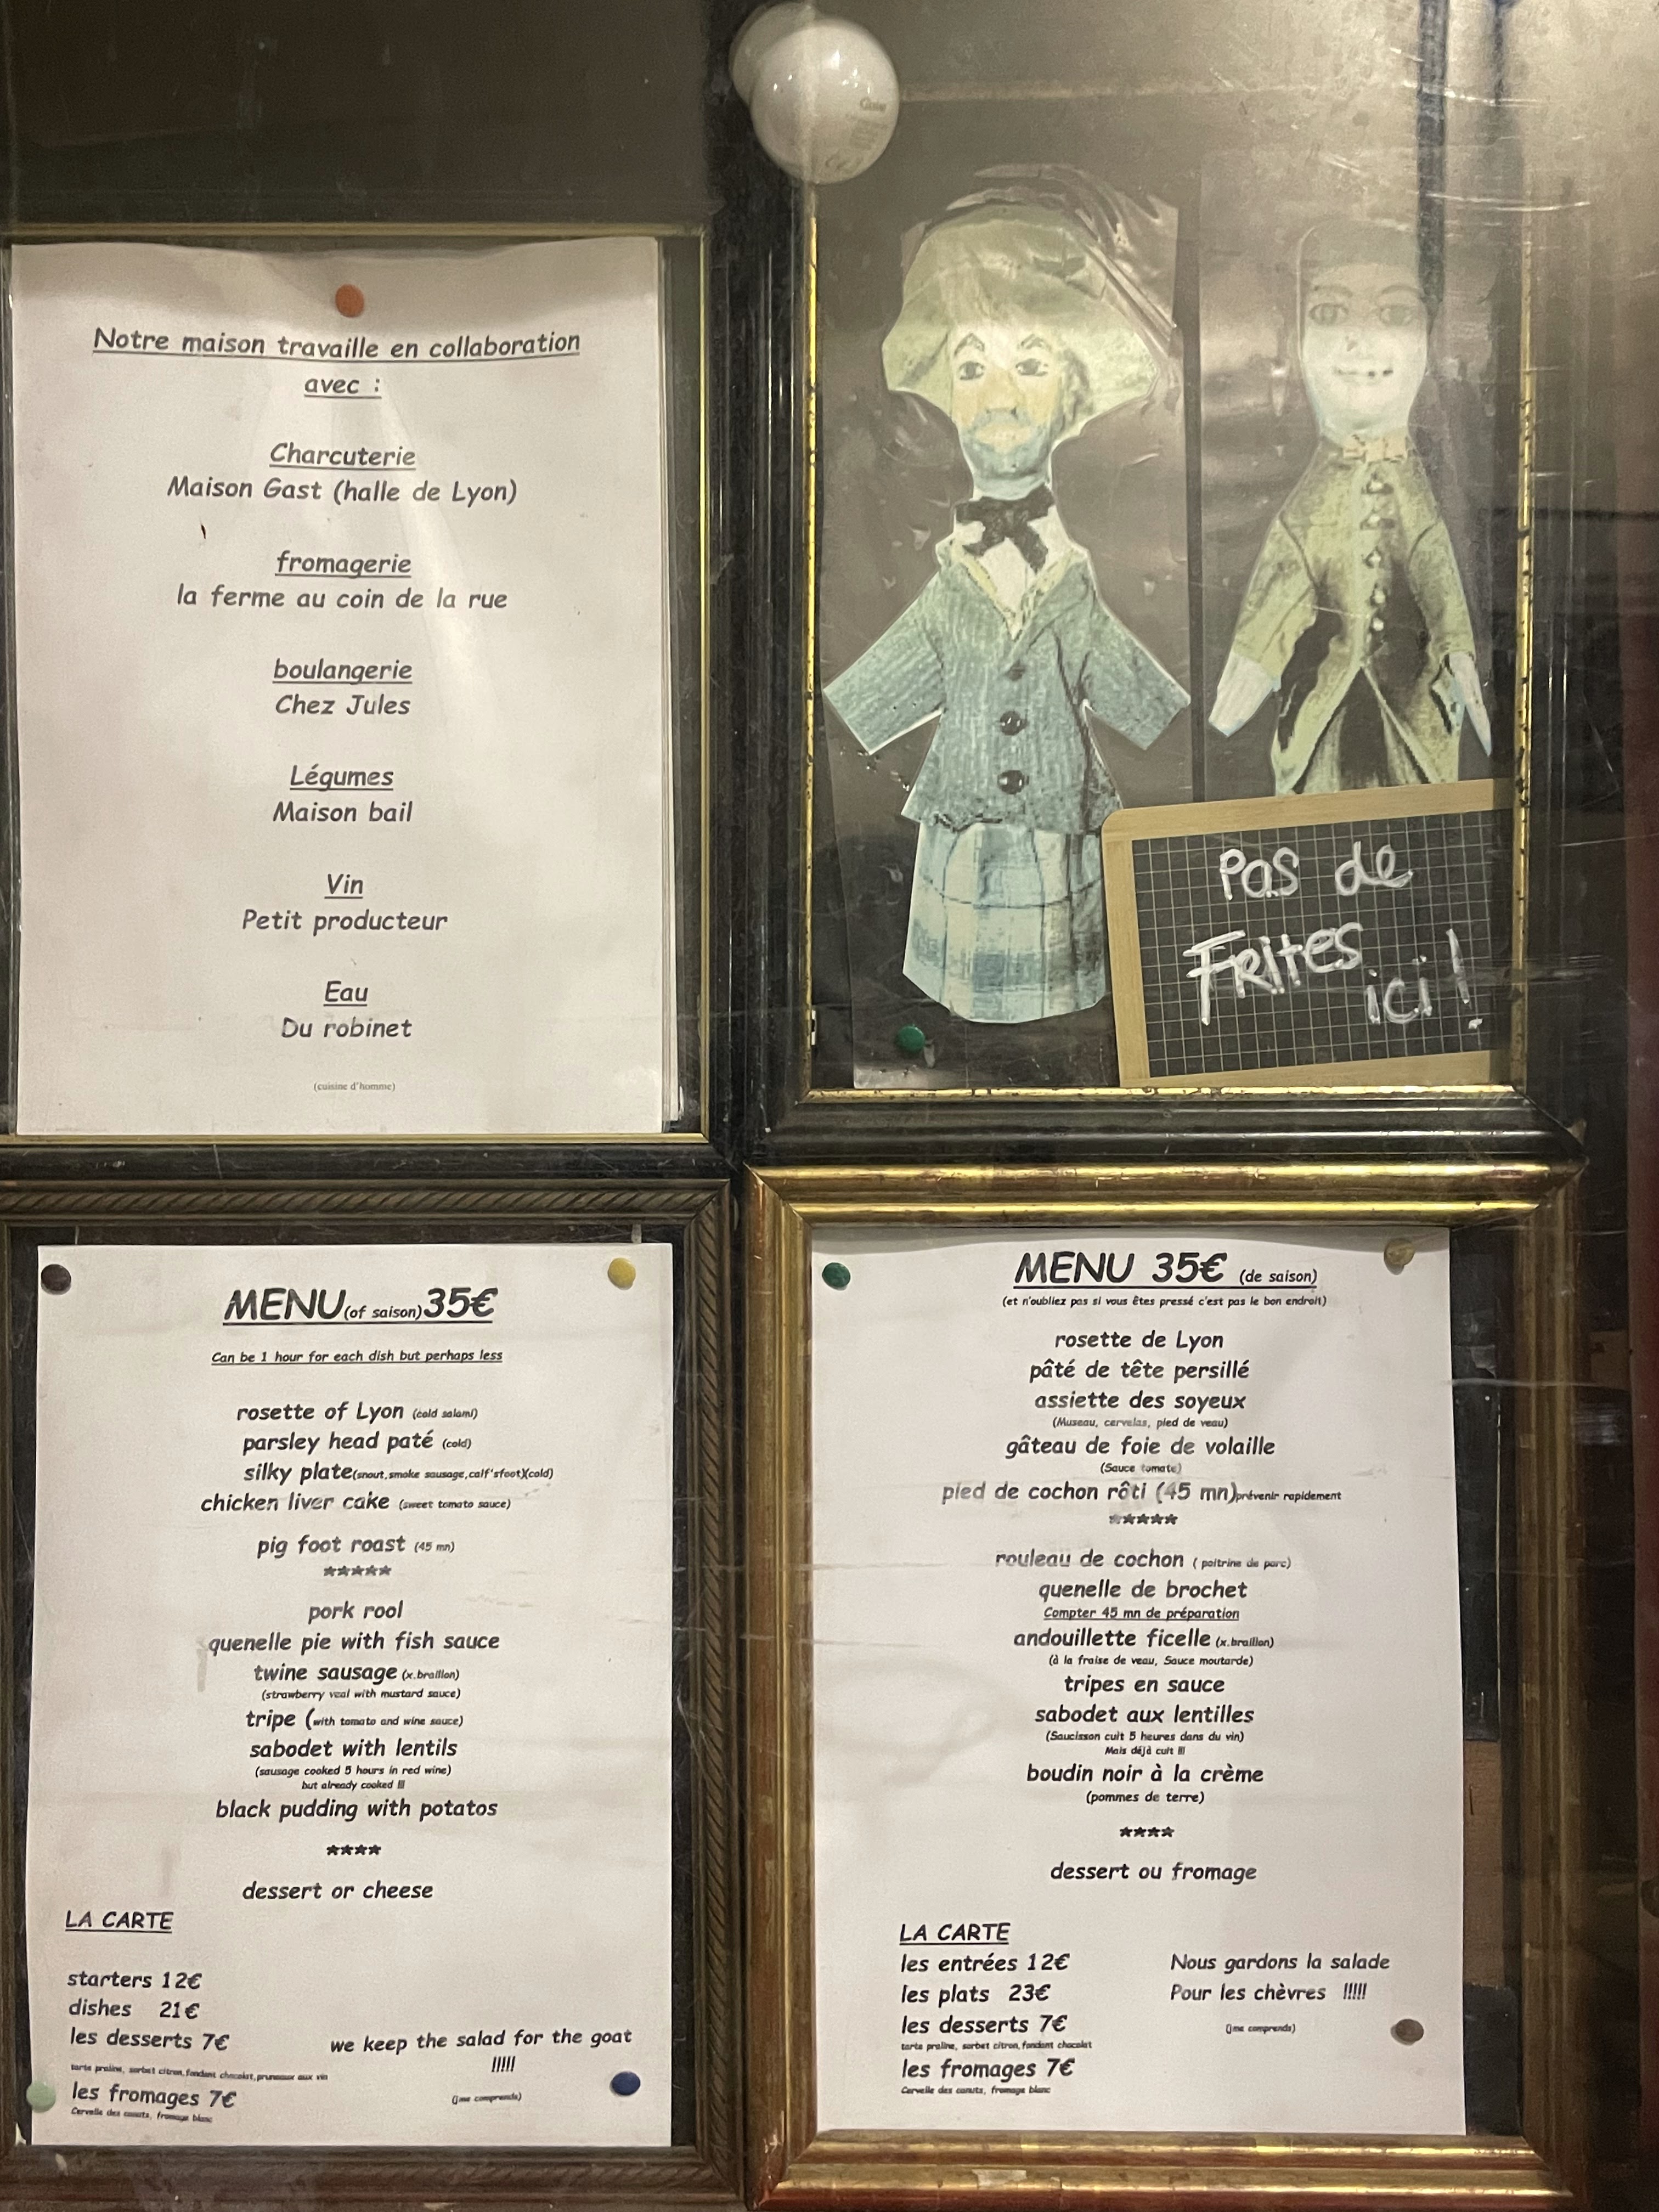 Notre maison travaille en collaboration
avec :
Charcuterie
Maison Gast (halle de Lyon)
fromagerie
la ferme au coin de la rue
boulangerie
Chez Jules
Légumes
Maison bail
Vin
Petit producteur
Eau
Du robinet
(cuisine d'homme)
Pas de
Frites
ici !
MENU(of saison)35€
Can be 1 hour for each dish but perhaps less
rosette of Lyon (cold salami)
parsley head paté (cold)
silky plate(snout,smoke sausage,calf'sfoot)(cold)
chicken liver cake (sweet tomato sauce)
pig foot roast (45 mn)
*****
pork rool
quenelle pie with fish sauce
twine sausage (x.braillon)
(strawberry veal with mustard sauce)
tripe (with tomato and wine sauce)
sabodet with lentils
(sausage cooked 5 hours in red wine)
but already cooked !!!
black pudding with potatos
****
dessert or cheese
LA CARTE
starters 12€
dishes 21€
les desserts 7€
tarte praline, sorbet citron,fondant chocolat,pruneaux aux vin
les fromages 7€
Cervelle des canuts, fromage blanc
we keep the salad for the goat
!!!!!
(jme comprends)
MENU 35€ (de saison)
(et n'oubliez pas si vous êtes pressé c'est pas le bon endroit)
rosette de Lyon
pâté de tête persillé
assiette des soyeux
(Museau, cervelas, pied de veau)
gâteau de foie de volaille
(Sauce tomate)
pied de cochon rôti (45 mn)prévenir rapidement
*****
rouleau de cochon ( poitrine de porc)
quenelle de brochet
Compter 45 mn de préparation
andouillette ficelle (x.braillon)
(à la fraise de veau, Sauce moutarde)
tripes en sauce
sabodet aux lentilles
(Saucisson cuit 5 heures dans du vin)
Mais déjà cuit !!!
boudin noir à la crème
(pommes de terre)
****
dessert ou fromage
LA CARTE
les entrées 12€
les plats 23€
les desserts 7€
tarte praline, sorbet citron,fondant chocolat
les fromages 7€
Cervelle des canuts, fromage blanc
Nous gardons la salade
Pour les chèvres !!!!!
(jme comprends)